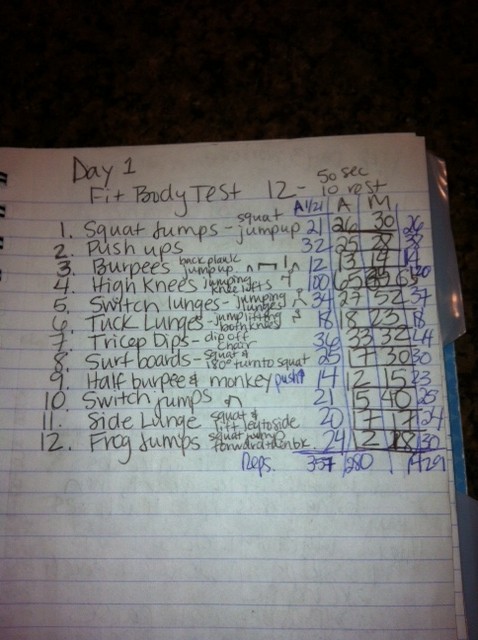 Day 1
Fit Body Test 12- 50 sec 10 rest
A 1/21 A M
1. Squat Jumps - squat jump up 21 26 30 26
2. Push ups 32 25 28
3. Burpees back plank jump up 12 13 14 14
4. High Knees jumping knee lifts 100 65 120
5. Switch lunges - jumping lunges 34 27 52 37
6. Tuck Lunges - jump lifting both knees 18 18 23 18
7. Tricep Dips - dip off chair 36 33 32 44
8. Surfboards - squat & 180° turn to squat 25 17 30 30
9. Half burpee & monkey push 14 12 15 23
10. Switch jumps 21 15 40 25
11. Side Lunge squat & lift leg to side 20 7 17 24
12. Frog Jumps squat jump forward then bk 24 2 18 30
Reps. 357 280 429